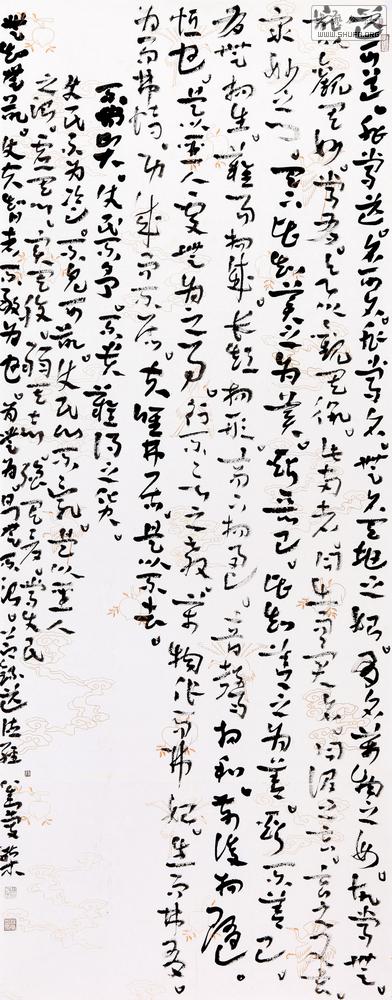 道可道。非常道。名可名。非常名。無名天地之始。有名萬物之母。故常無。
欲以觀其妙。常有。欲以觀其徼。此兩者。同出而異名。同謂之玄。玄之又玄。
眾妙之門。天下皆知美之為美。斯惡已。皆知善之為善。斯不善已。
有無相生。難易相成。長短相形。高下相盈。音聲相和。前後相隨。
恒也。是以聖人處無為之事。行不言之教。萬物作而弗始。生而弗有。
為而弗恃。功成而不居。夫唯弗居。是以不去。
不尚賢。使民不爭。不貴難得之貨。
使民不為盜。不見可欲。使民心不亂。是以聖人
之治。虛其心。實其腹。弱其志。強其骨。常使民
無知無欲。使夫智者不敢為也。為無為。則無不治。
WWW.SHUFA.ORG